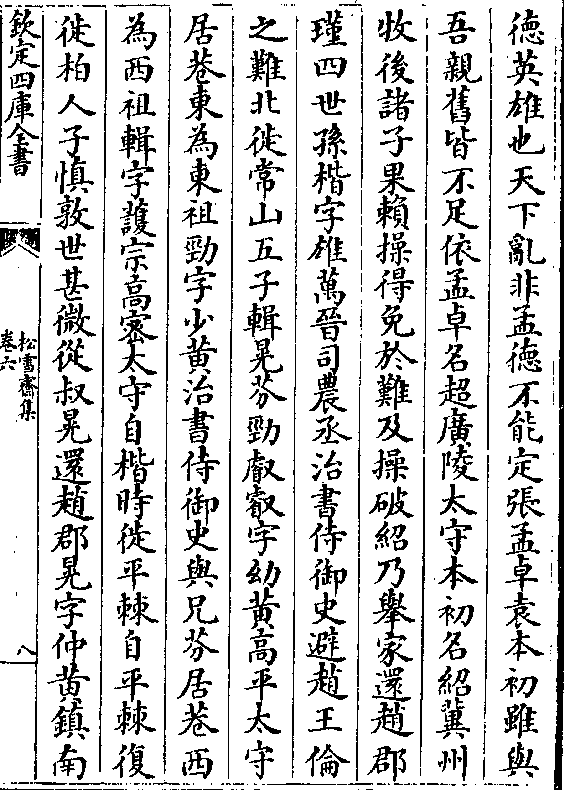 德英雄也天下亂非孟德不能定張孟卓袁本初雖與
吾親舊皆不足依孟卓名超廣陵太守本初名紹冀州
牧後諸子果賴操得免於難及操破紹乃舉家還趙郡
瑾四世孫楷字雄萬晉司農丞治書侍御史避趙王倫
之難北徙常山五子輯晃芬勁叡叡字幼黄高平太守
居巷東為東祖勁字少黄治書侍御史與兄芬居巷西
為西祖輯字護宗高宻太守自楷時徙平棘自平棘復
徙柏人子慎敦世甚微從叔晃還趙郡晃字仲黄鎮南
欽定四庫全書
松雪齋集
卷六
八